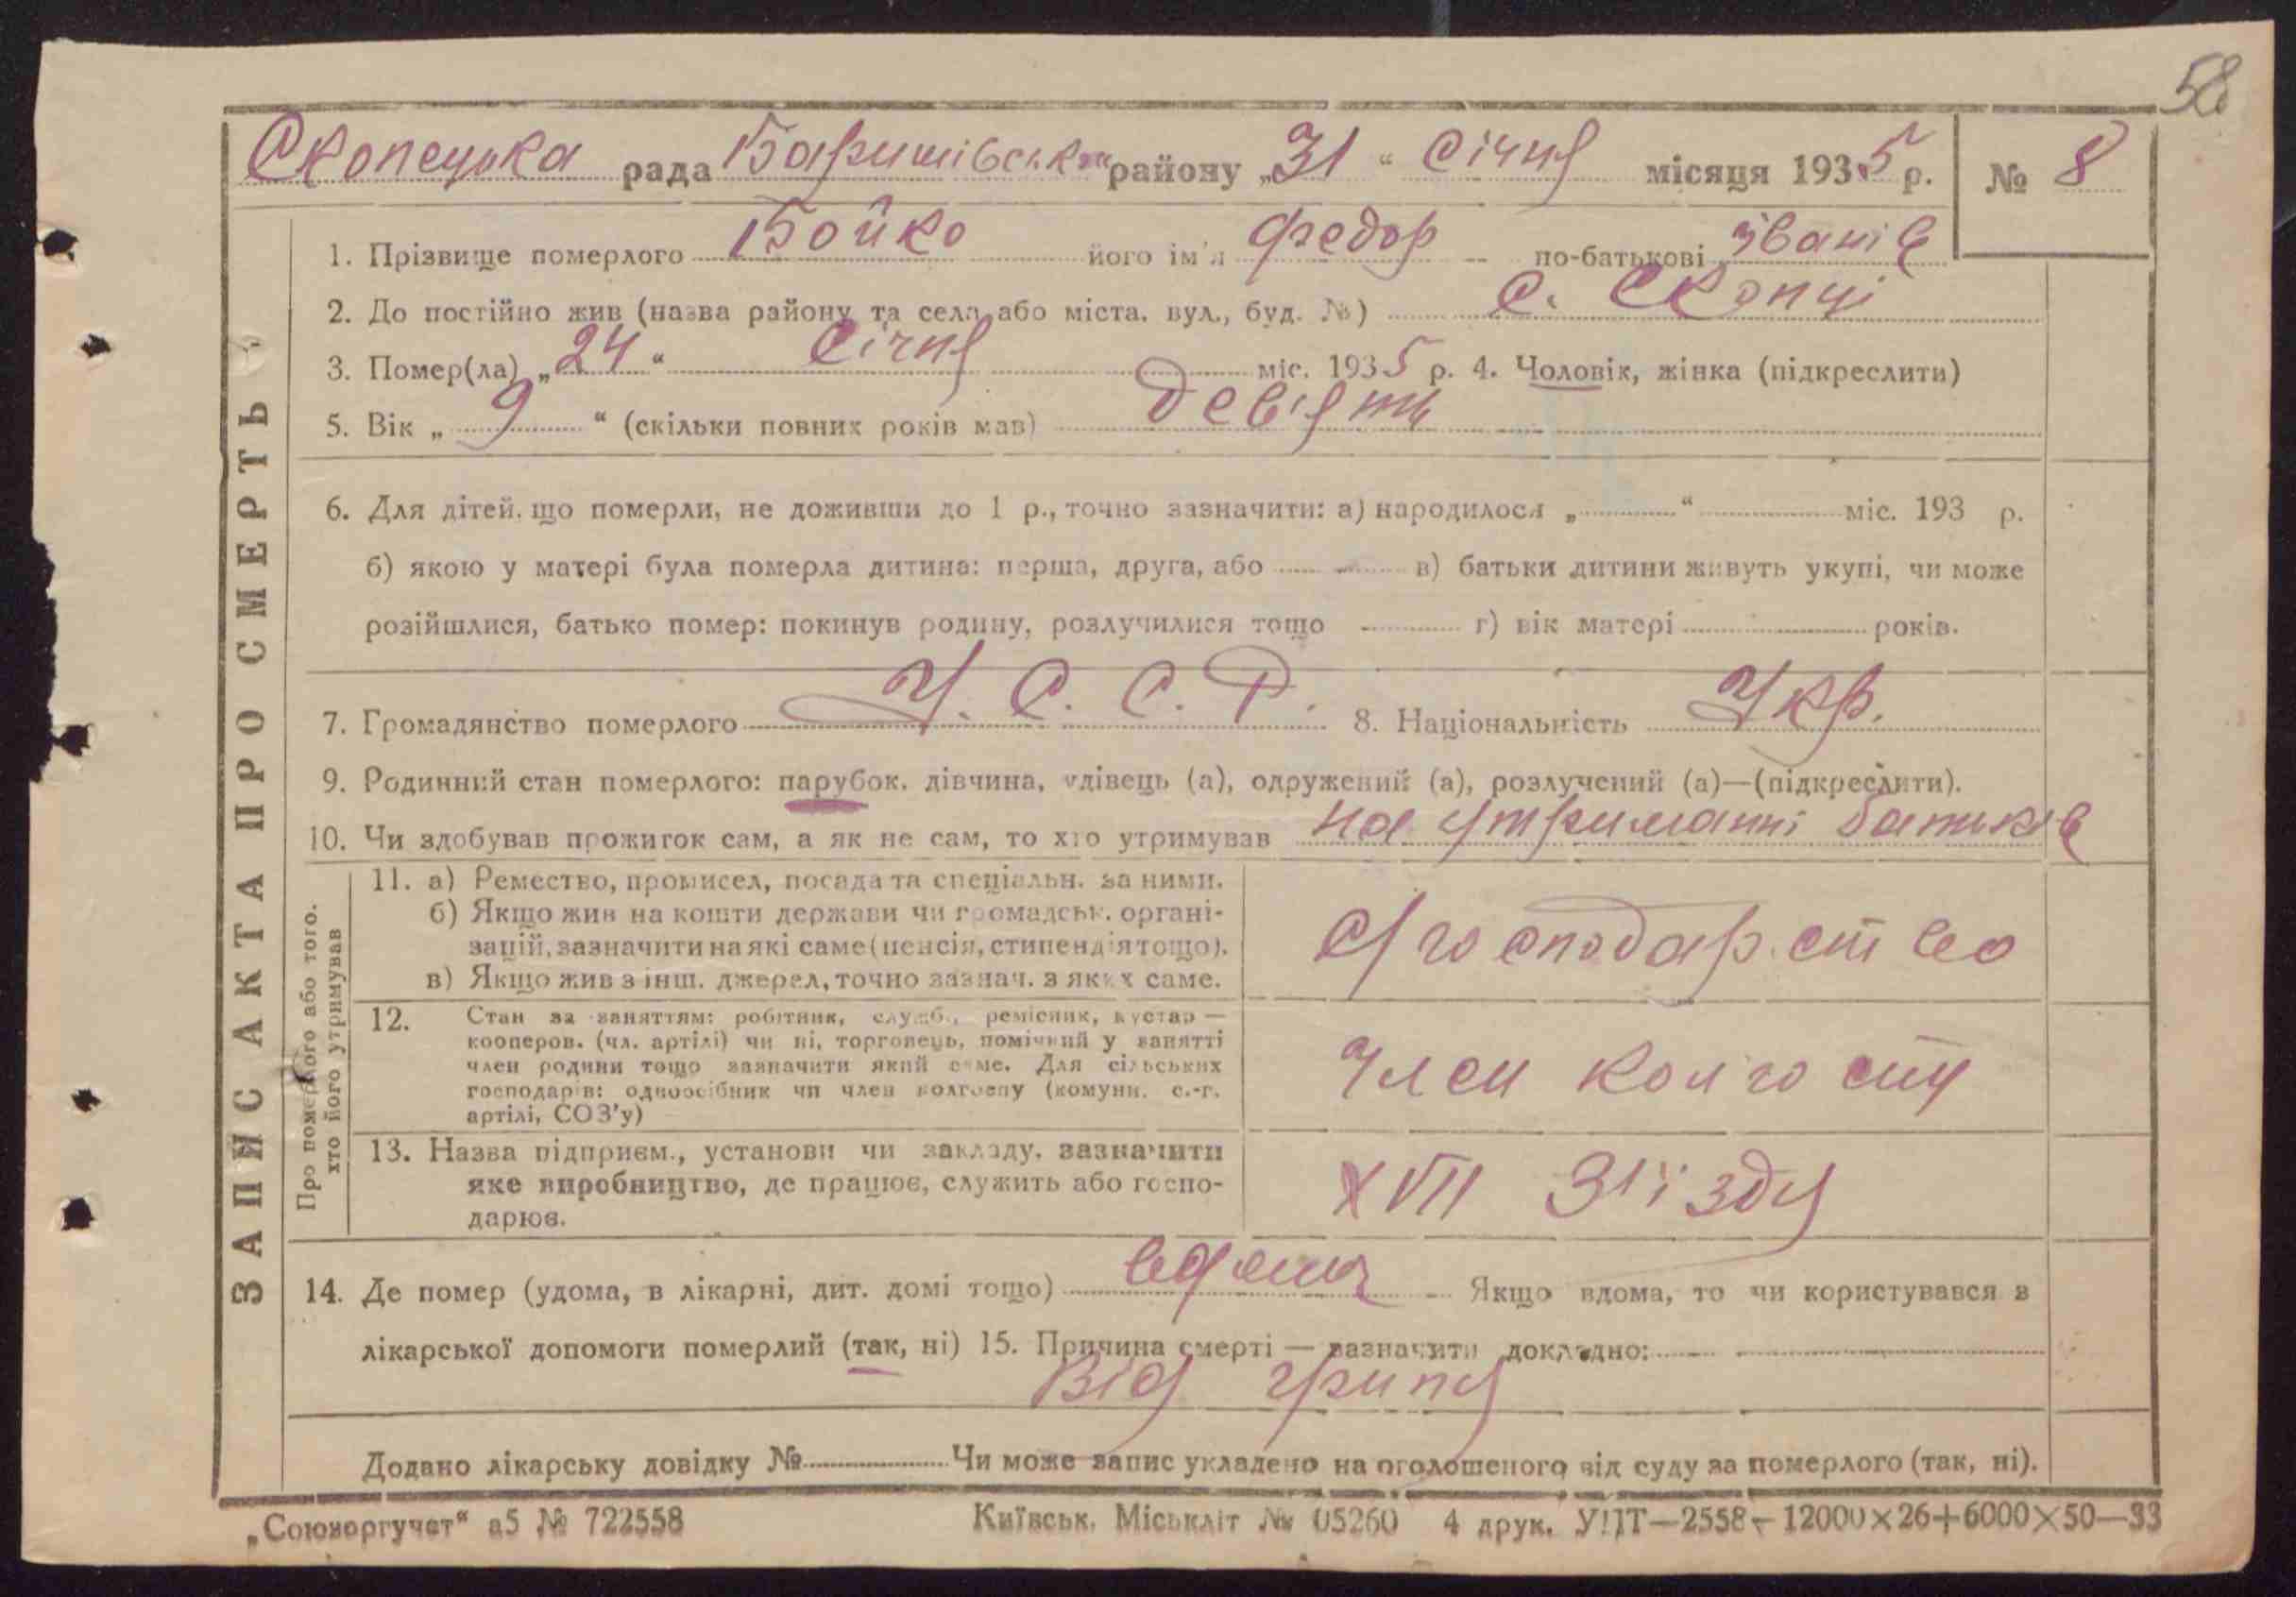 58
Скопецька рада Баришівськ району „31“ Січня місяця 1935 р. № 8
1. Прізвище померлого Бойко його ім'я Федор по-батькові Іванів
2. До постійно жив (назва району та села або міста, вул., буд. №) С. Скопці
3. Помер(ла) „24“ Січня міс. 1935 р. 4. Чоловік, жінка (підкреслити)
5. Вік „9“ (скільки повних років мав) девіять
6. Для дітей, що померли, не доживши до 1 р., точно зазначити: а) народилося „ “ міс. 193 р.
б) якою у матері була померла дитина: перша, друга, або в) батьки дитини живуть укупі, чи може
розійшлися, батько помер: покинув родину, розлучилися тощо г) вік матері років.
7. Громадянство померлого У. С. С. Р. 8. Національність Укр.
9. Родинний стан померлого: парубок, дівчина, удівець (а), одружений (а), розлучений (а)—(підкреслити).
10. Чи здобував прожиток сам, а як не сам, то хто утримував на утриманні батьків
Про померлого або того,
хто його утримував
11. а) Ремество, промисел, посада та спеціальн. за ними.
б) Якщо жив на кошти держави чи громадськ. органі-
зацій, зазначити на які саме (пенсія, стипендія тощо).
в) Якщо жив з інш. джерел, точно зазнач. з яких саме.
С/господарство
12. Стан за заняттям: робітник, служб., ремісник, кустар —
кооперов. (чл. артілі) чи ні, торговець, помічний у занятті
член родини тощо зазначити який саме. Для сільських
господарів: одноосібник чи член колгоспу (комуни, с.-г.
артілі, СОЗ'у)
Член колгоспу
13. Назва підприєм., установи чи закладу, зазначити
яке виробництво, де працює, служить або госпо-
дарює.
XVII З'їзду
14. Де помер (удома, в лікарні, дит. домі тощо) вдома Якщо вдома, то чи користувався в
лікарської допомоги померлий (так, ні) 15. Причина смерті — зазначити докладно:
Від грипу
Додано лікарську довідку № Чи може запис укладено на оголошеного від суду за померлого (так, ні).
ЗАПИС АКТА ПРО СМЕРТЬ
„Союзоргучет“ а5 № 722558 Київськ. Міськліт № 05260 4 друк. УПТ—2558— 12000×26+6000×50—33